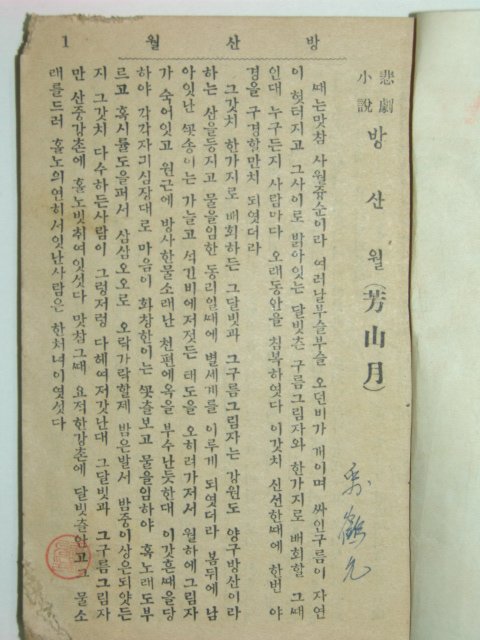 방 산 월 1
悲劇
小說 방 산 월 (芳山月)
때는맛참 사월즁순이라 여러날부슬부슬 오던비가 개이며 싸인구름이 자연
이 헛터지고 그사이로 밝아잇는 달빗츤 구름그림자와 한가지로 배회할 그때
인대 누구든지 사람마다 오래동안을 침복하엿다 이갓치 신선한때에 한번 야
경을 구경할만치 되엿더라
그갓치 한가지로 배회하든 그달빗과 그구름그림자는 강원도 양구방산이라
하는 산을등지고 물을임한 동리일때에 별세계를 이루게 되엿더라 봄뒤에 남
아잇던 꼿송이는 가늘고 석긴비에저젓든 태도을 오히려가저서 월하에그림자
가 숙어잇고 원근에 방사한물소래난 천편에옥을 부수난듯한대 이갓흔때을당
하야 각각자긔심장대로 마음이 화창한이는 꼿츨보고 물을임하야 혹노래도부
르고 혹시률도을펴서 삼삼오오로 오락가락할제 밤은발서 밤중이상은되얏든
지 그갓치 다수하든사람이 그렁저렁 다헤여저갓난대 그달빗과 그구름그림자
만 산중강촌에 홀노빗취여잇섯다 맛참그때 요적한강촌에 달빗츨안고그 물소
래를드러 홀노의연히서잇난사람은 한처녀이엿섯다